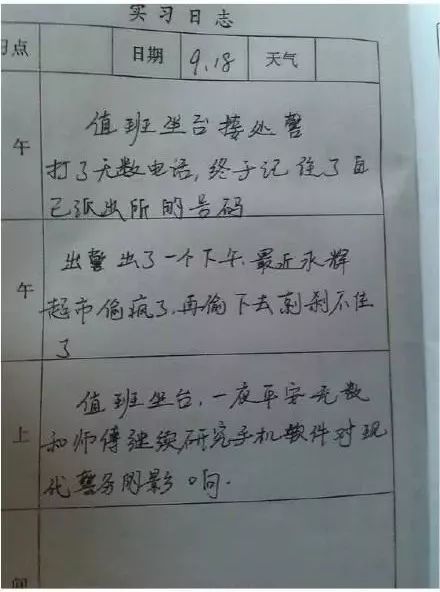 实习日志
习点
日期
9.18
天气
午
值班坐台接处警
打了无数电话,终于记住了自
己派出所的号码
午
出警出了一个下午.最近永辉
超市偷疯了.再偷下去刹刹不住
了
上
值班坐台,一夜平安无数
和师傅继续研究手机软件对现
代警务的影响.
间